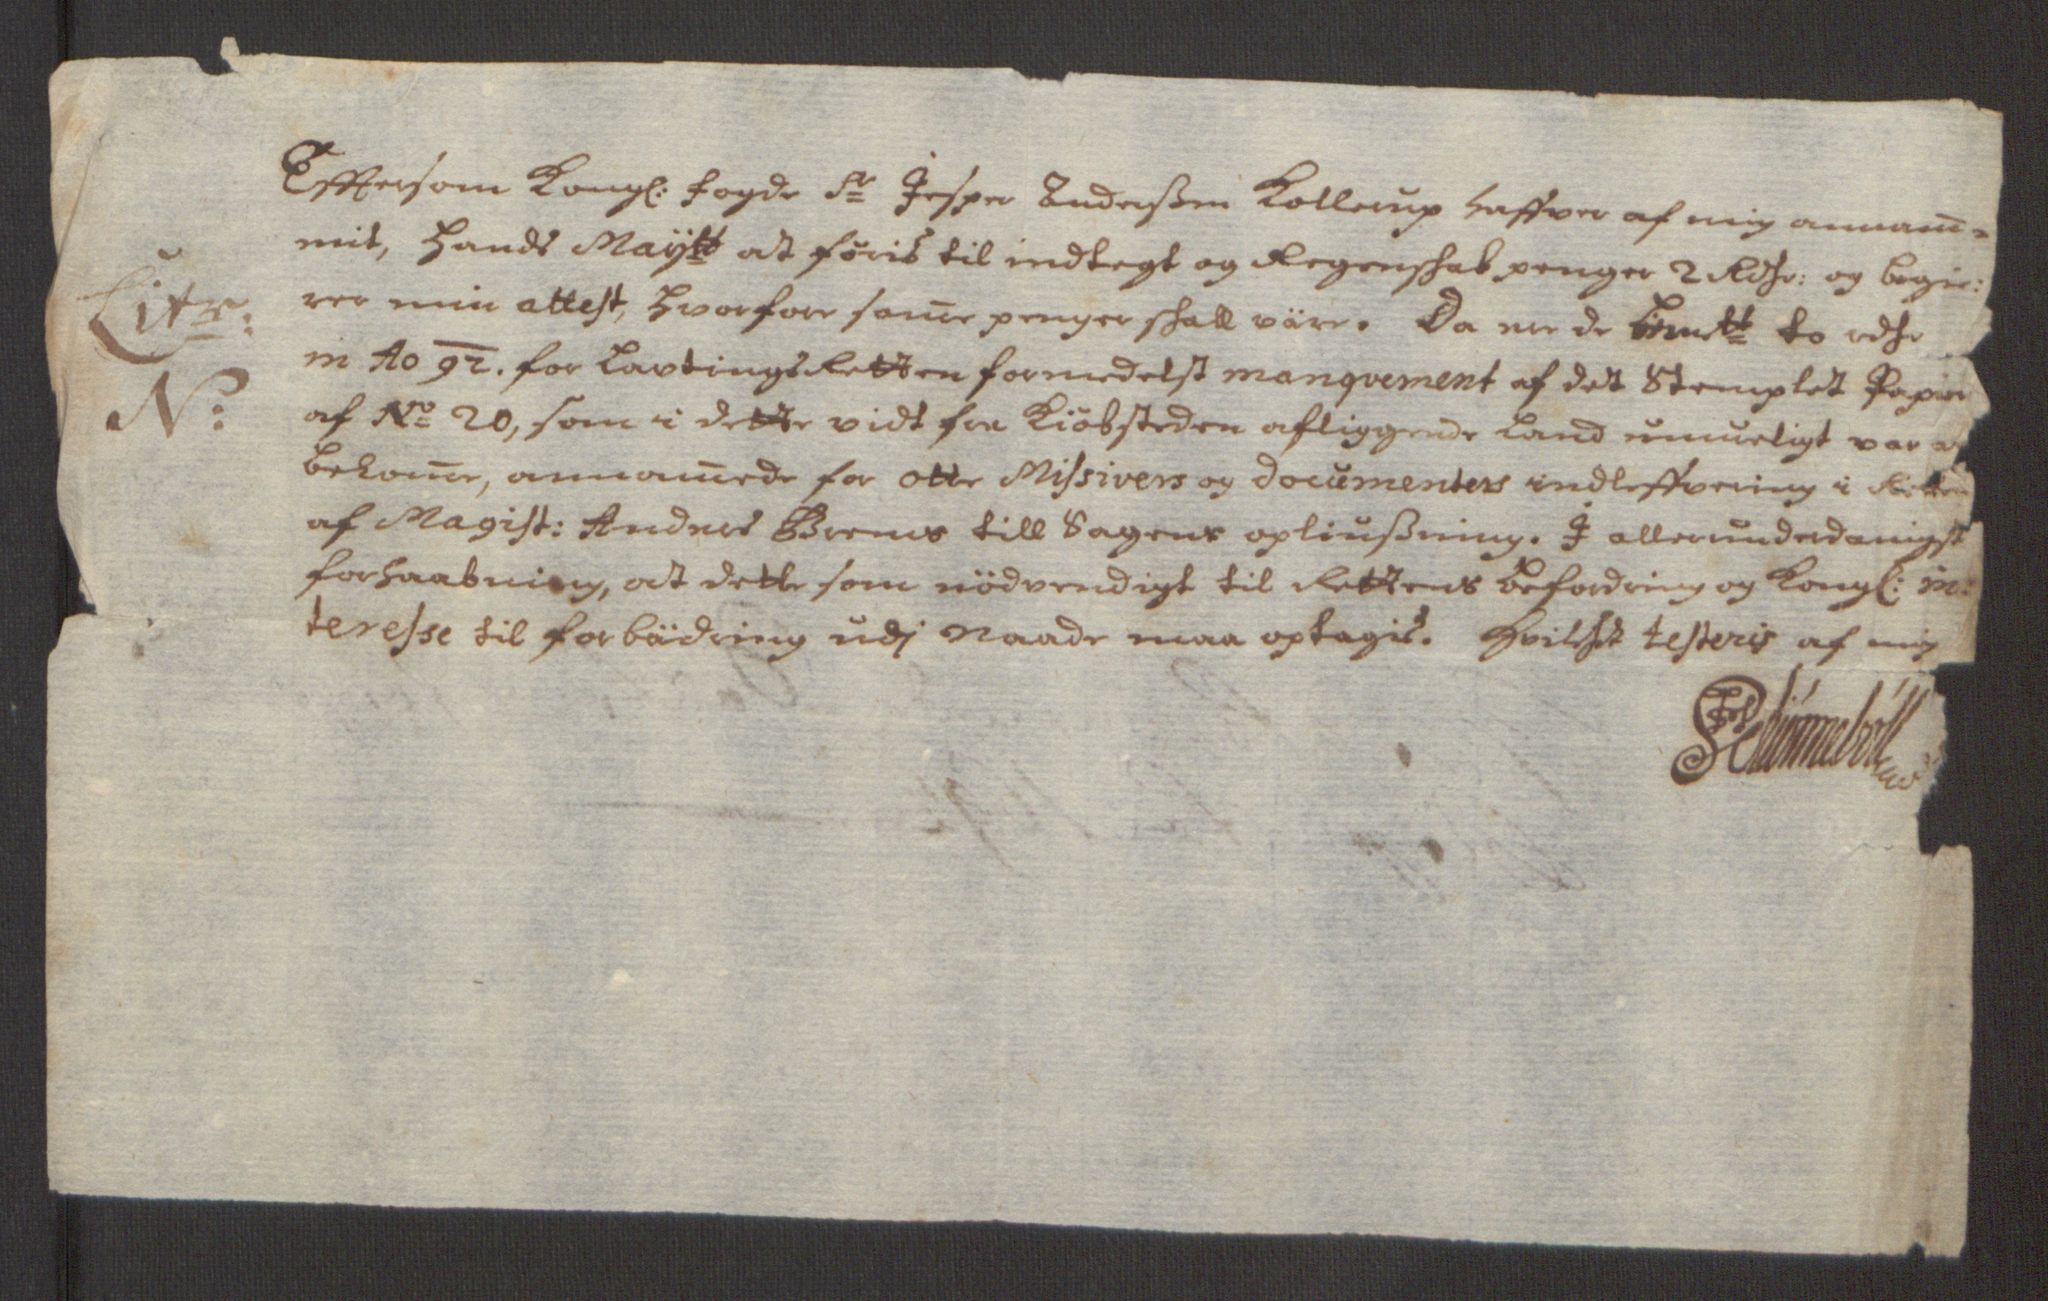 Efftersom Kongl: fogde Sr Jesper Anderßen Kollerup haffver af mig annam̄=
mit, Hands Maÿtt at føris til indtegt og Regenschab penger 2 Rdhr: og begie:
rer min attest, hvorfore sam̄e penger shall väre. Da ere de bemtte to rdhr
in Ao 92. for LavtingsRetten formedelst manqvement af det Stemplet Papir
af No 20, som i dette vidt fra Kiöbsteden afliggende Land umueligt var at
bekom̄e, annam̄ede for otte Missivers og documenters indleffvering i Retten
af Magist: Anders Brems till Sagens opliußning. I allerunderdanigst
forhaabning, at dette som nödvendigt til Rettens befordring og Kongl: in:
teresse til forbädring udj Naade maa optagis. Hvilchet testeris af mig
Litr:
No: